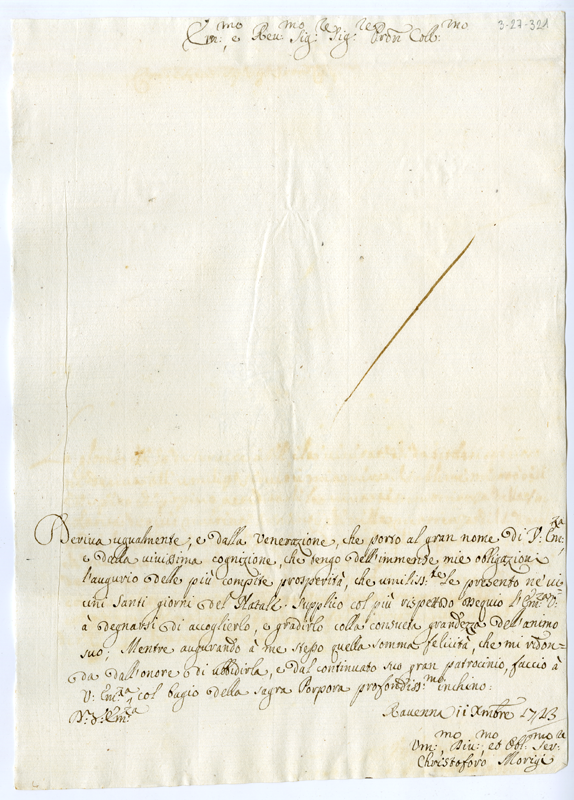 3-27-321
Em:mo e Rev:mo Sig:re Sig:re Pron Coll:mo
Deriva ugualmente, e dalla venerazione, che porto al gran nome di V: Em:za
e dalla vivissima cognizione, che tengo dell'immense mie obligazioni
l'augurio delle più compite prosperità, che umiliss:te le presento ne' vi-
cini Santi giorni del Natale. Supplico col più rispettoso ossequio l'Em:za V:
à degnarsi di accoglierlo, e gradirlo colla consueta grandezza dell'animo
suo; Mentre augurando à me stesso quella somma felicità, che mi ridon-
da dall'onore di ubbidirla, e dal continuato suo gran patrocinio, faccio à
V: Em:za col bagio della sagra Porpora profondiss:mo inchino:
Di V: Em:za
Ravenna 11 Xmbre 1723
Um:mo, Div:mo, ed Obl:mo Ser:re
Christoforo Morigi